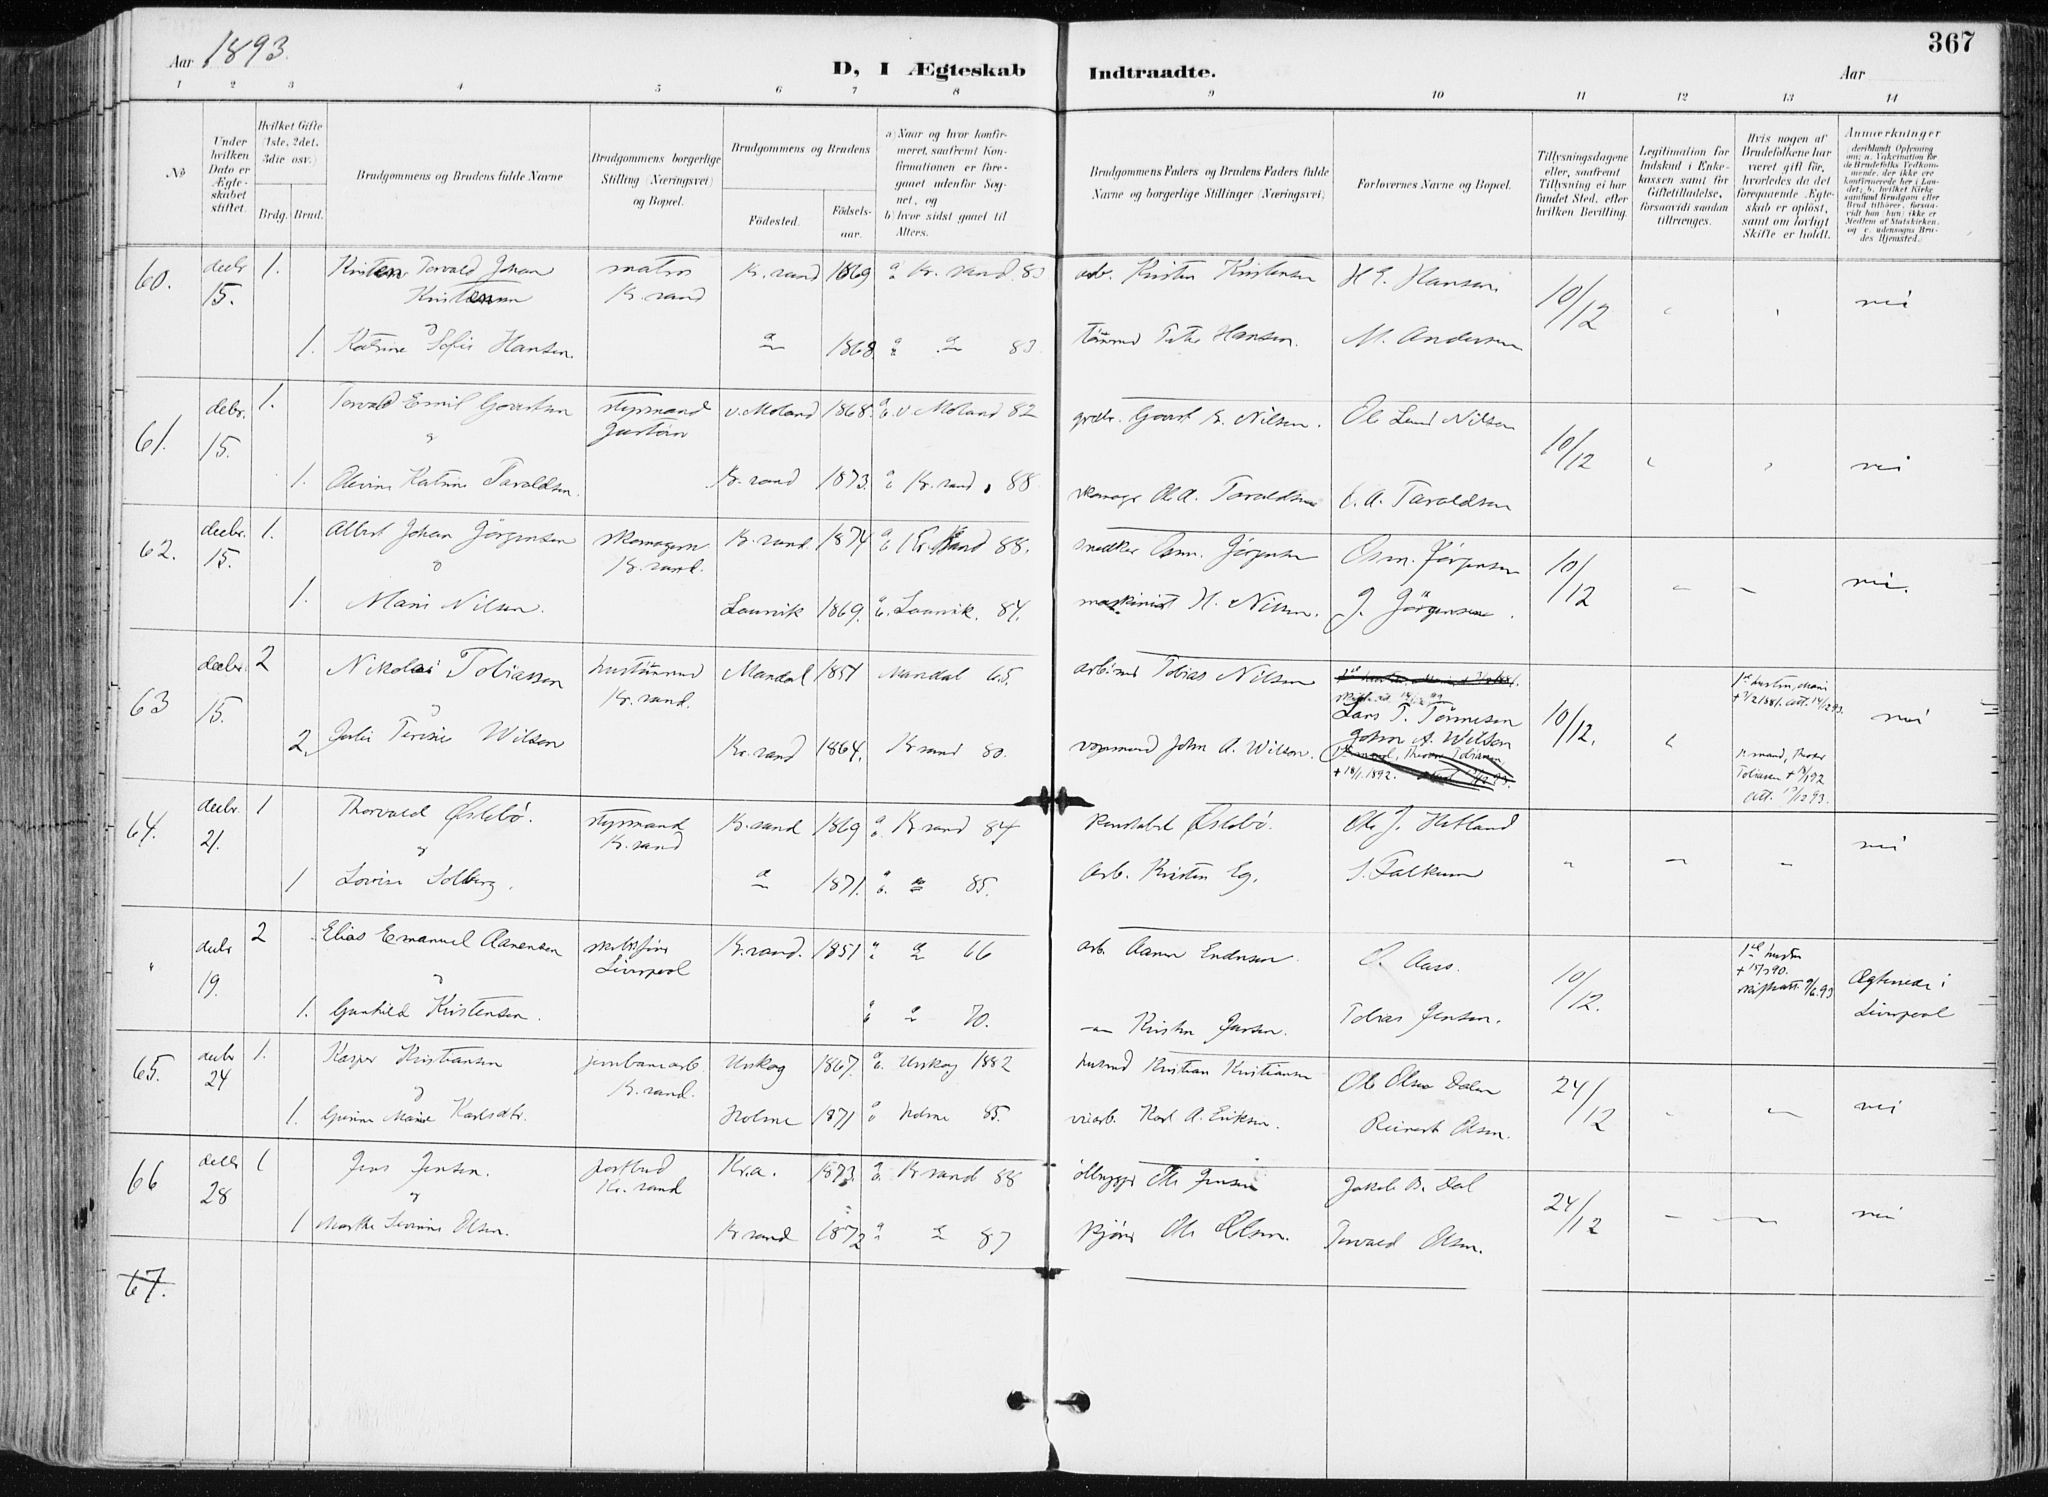 Aar 1893.
D, I Ægteskab Indtraadte.
Aar
367
1 2 3 4 5 6 7 8 9 10 11 12 13 14
No
Under hvilken Dato er Ægteskabet stiftet.
Hvilket Gifte (1ste, 2det, 3die osv.)
Brdg. Brud.
Brudgommens og Brudens fulde Navne
Brudgommens borgerlige Stilling (Næringsvei) og Bopæl.
Brudgommens og Brudens
Födested.
Födselsaar.
a) Naar og hvor konfirmeret, saafremt Konfirmationen er foregaaet udenfor Sognet, og
b) hvor sidst gaaet til Alters.
Brudgommens Faders og Brudens Faders fulde Navne og borgerlige Stillinger (Næringsvei).
Forlovernes Navne og Bopæl.
Tillysningsdagene eller, saafremt Tillysning ei har fundet Sted, efter hvilken Bevilling.
Legitimation for Indskud i Enkekassen samt for Giftetilladelse, forsaavidt saadan tiltrænges.
Hvis nogen af Brudefolkene har været gift för, hvorledes da det foregaaende Ægteskab er oplöst, samt om lovligt Skifte er holdt.
Anmærkninger
60. decbr 15. 1. Kristen Torvald Johan Kristensen matros Kr.sand Kr. sand 1869 Kr. sand 83 arb. Kristen Kristensen H E. Hansen 10/12 nei
1. Katrine Sofie Hansen. 1868 83 Hansen. M. Andersen
61. debr. 15. 1. Torvald Emil Govertsen styrmand Justöen v. Moland 1868. v Moland 82 Govert E. Nilsen. Ole Lund Nilsen 10/12 nei
1. Olevine Katrine Taraldsen. Kr. sand 1873. Kr. sand. 88 skomager Ole A. Taraldsen O. A. Taraldsen
62. decbr. 15. 1. Albert Johan Jörgensen skomagersv. Kr. sand. Kr. sand. 1874 Kr. sand 88. snedker Osm. Jörgensen Osm. Jörgensen 10/12 nei.
1. Marie Nilsen. Laurvik 1869. Laurvik. 84. maskinist H. Nilsen. J. Jörgensen.
63 decbr. 15. 2 Nikolai Tobiassen Kr. sand. Mandal 1851 Mandal 65. Tobias Nilsen Lars T. Tönnesen 10/12. nei
2. Julie Terine Wilson Kr. sand 1864. Kr sand 80. John A. Wilson. John A. Wilson
64. decbr. 21. 1 Thorvald Öslebö. styrmand Kr. sand Kr. sand 1869 Kr sand 84 konstabel Öslebö. Ole J. Hetland nei
1 Lovise Solberg. 1871. 85. Arb. Kristen Eg. S. Falkum
decbr 19. 2 Elias Emanuel Aanensen skibsförer Liverpool Kr. sand. 1851 66 arb. Aanen Endresen. O. Aass. 10/12. Ægtevied i Liverpool
1. Gunhild Kristensen. 70. Kristen Jensen. Tobias Jensen.
65. decbr 24 1. Kasper Kristiansen jernbanearb. Kr. sand. Urskog 1867. Urskog 1882 husmd Kristian Kristiansen Ole Olsen Dalen 24/12 nei
1. Marie Karlsdtr. Holme 1871 Holme 85. Karl A. Eriksen. Reinert Olsen.
66 decbr 28 1 Jens Jensen. postbud Kr. sand Kr.a. 1873. Kr sand 88 Ole Jensen Jakob B. Dal 24/12 nei
1 Marthe Severine Olsen. Kr sand 1872 87 kjörer Ole Olsen. Torvald Olsen.
67.